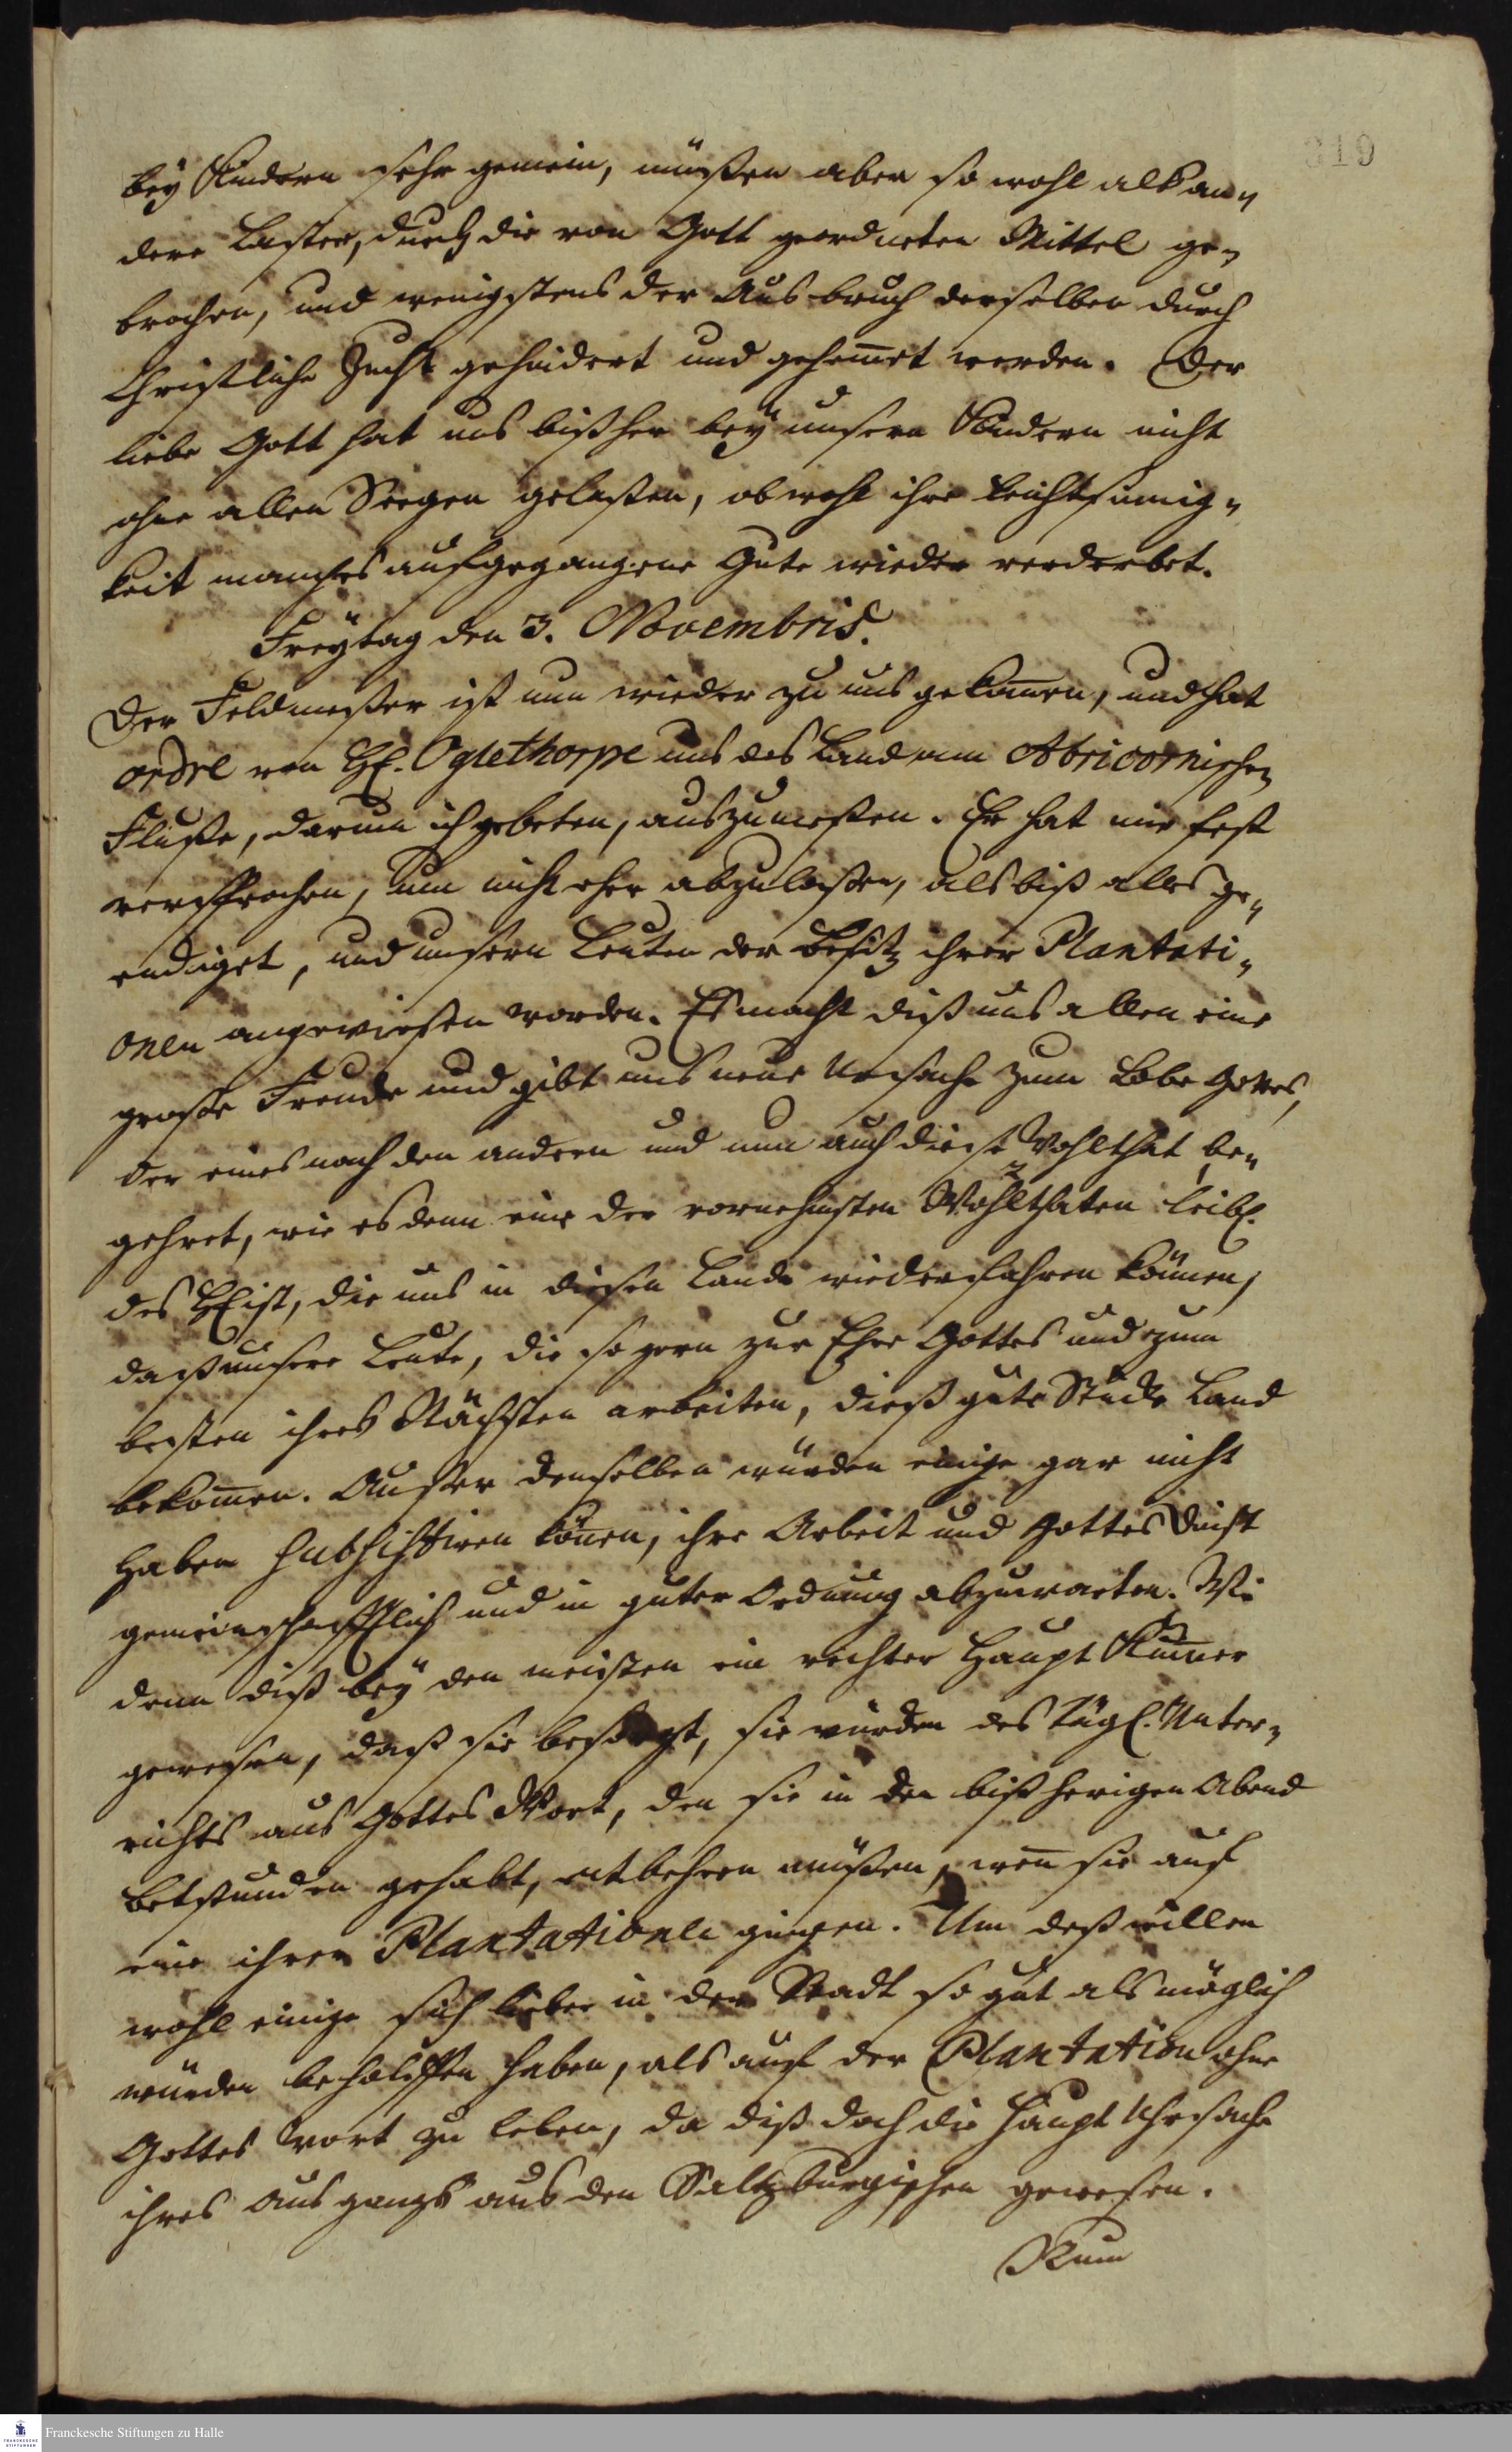 319
bey Kindern sehr gemein, müßen aber so wohl als an„
dere Laster, durch die von Gott geordneten Mittel ge„
brochen, und wenigstens der Ausbruch derselben durch
Christliche Zucht gehindert und gehem̅et werden. Der
liebe Gott hat uns bißher bey unsern Kindern nicht
ohne allen Seegen gelaßen, obwohl ihre Leichtsinnig„
keit manches aufgegangene Gute wieder verderbet.
Freytag den 3. Novembris.
Der Feldmeßer ist nun wieder zu uns gekom̅en, und hat
ordre von H. Oglethorpe uns das Land am Abricornischen
Fluße, darum ich gebeten, auszumeßen. Er hat mir fest
versprochen, nun nicht eher abzulaßen, als biß alles ge„
endiget, und unsern Leuten der Besitz ihrer Plantati„
onen angewiesen worden. Es macht diß uns allen eine
große Freude und gibt uns neue Ursache zum Lobe Gottes,
der eines nach dem andern und nun auch diese Wohlthat be„
schret, wie es denn eine der vornehmsten Wohlthaten leibl.
des ist, die uns in diesem Lande wiederfahren können,
daß unsere Leute, die so gern zur Ehre Gottes und zum
besten ihres Nächsten arbeiten, dieß gute Stück Land
bekom̅en. Außer demselben würden einige gar nicht
haben subsistiren kön̅en, ihre Arbeit und Gottesdinst
gemeinschafftlich und in guter Ordnung abzuwarten. Wie
denn diß bey den meisten ein rechter Haupt Kum̅er
gewesen, daß sie besorgt, sie würden des tägl. Unter„
richts aus Gottes Wort, den sie in den bißherigen Abend
Betstunden gehabt, entbehren müßen, wen̅ sie auf
eine ihrer Plantationen gingen. Um deßwillen
wohl einige sich lieber in der Stadt so gut als möglich
würden beholffen haben, als auf der Plantation ohne
Gottes Wort zu leben, da diß doch die Haupt Uhrsache
ihres Ausgangs aus dem Saltzburgischen gewesen.
Num
Franckesche Stiftungen zu Halle